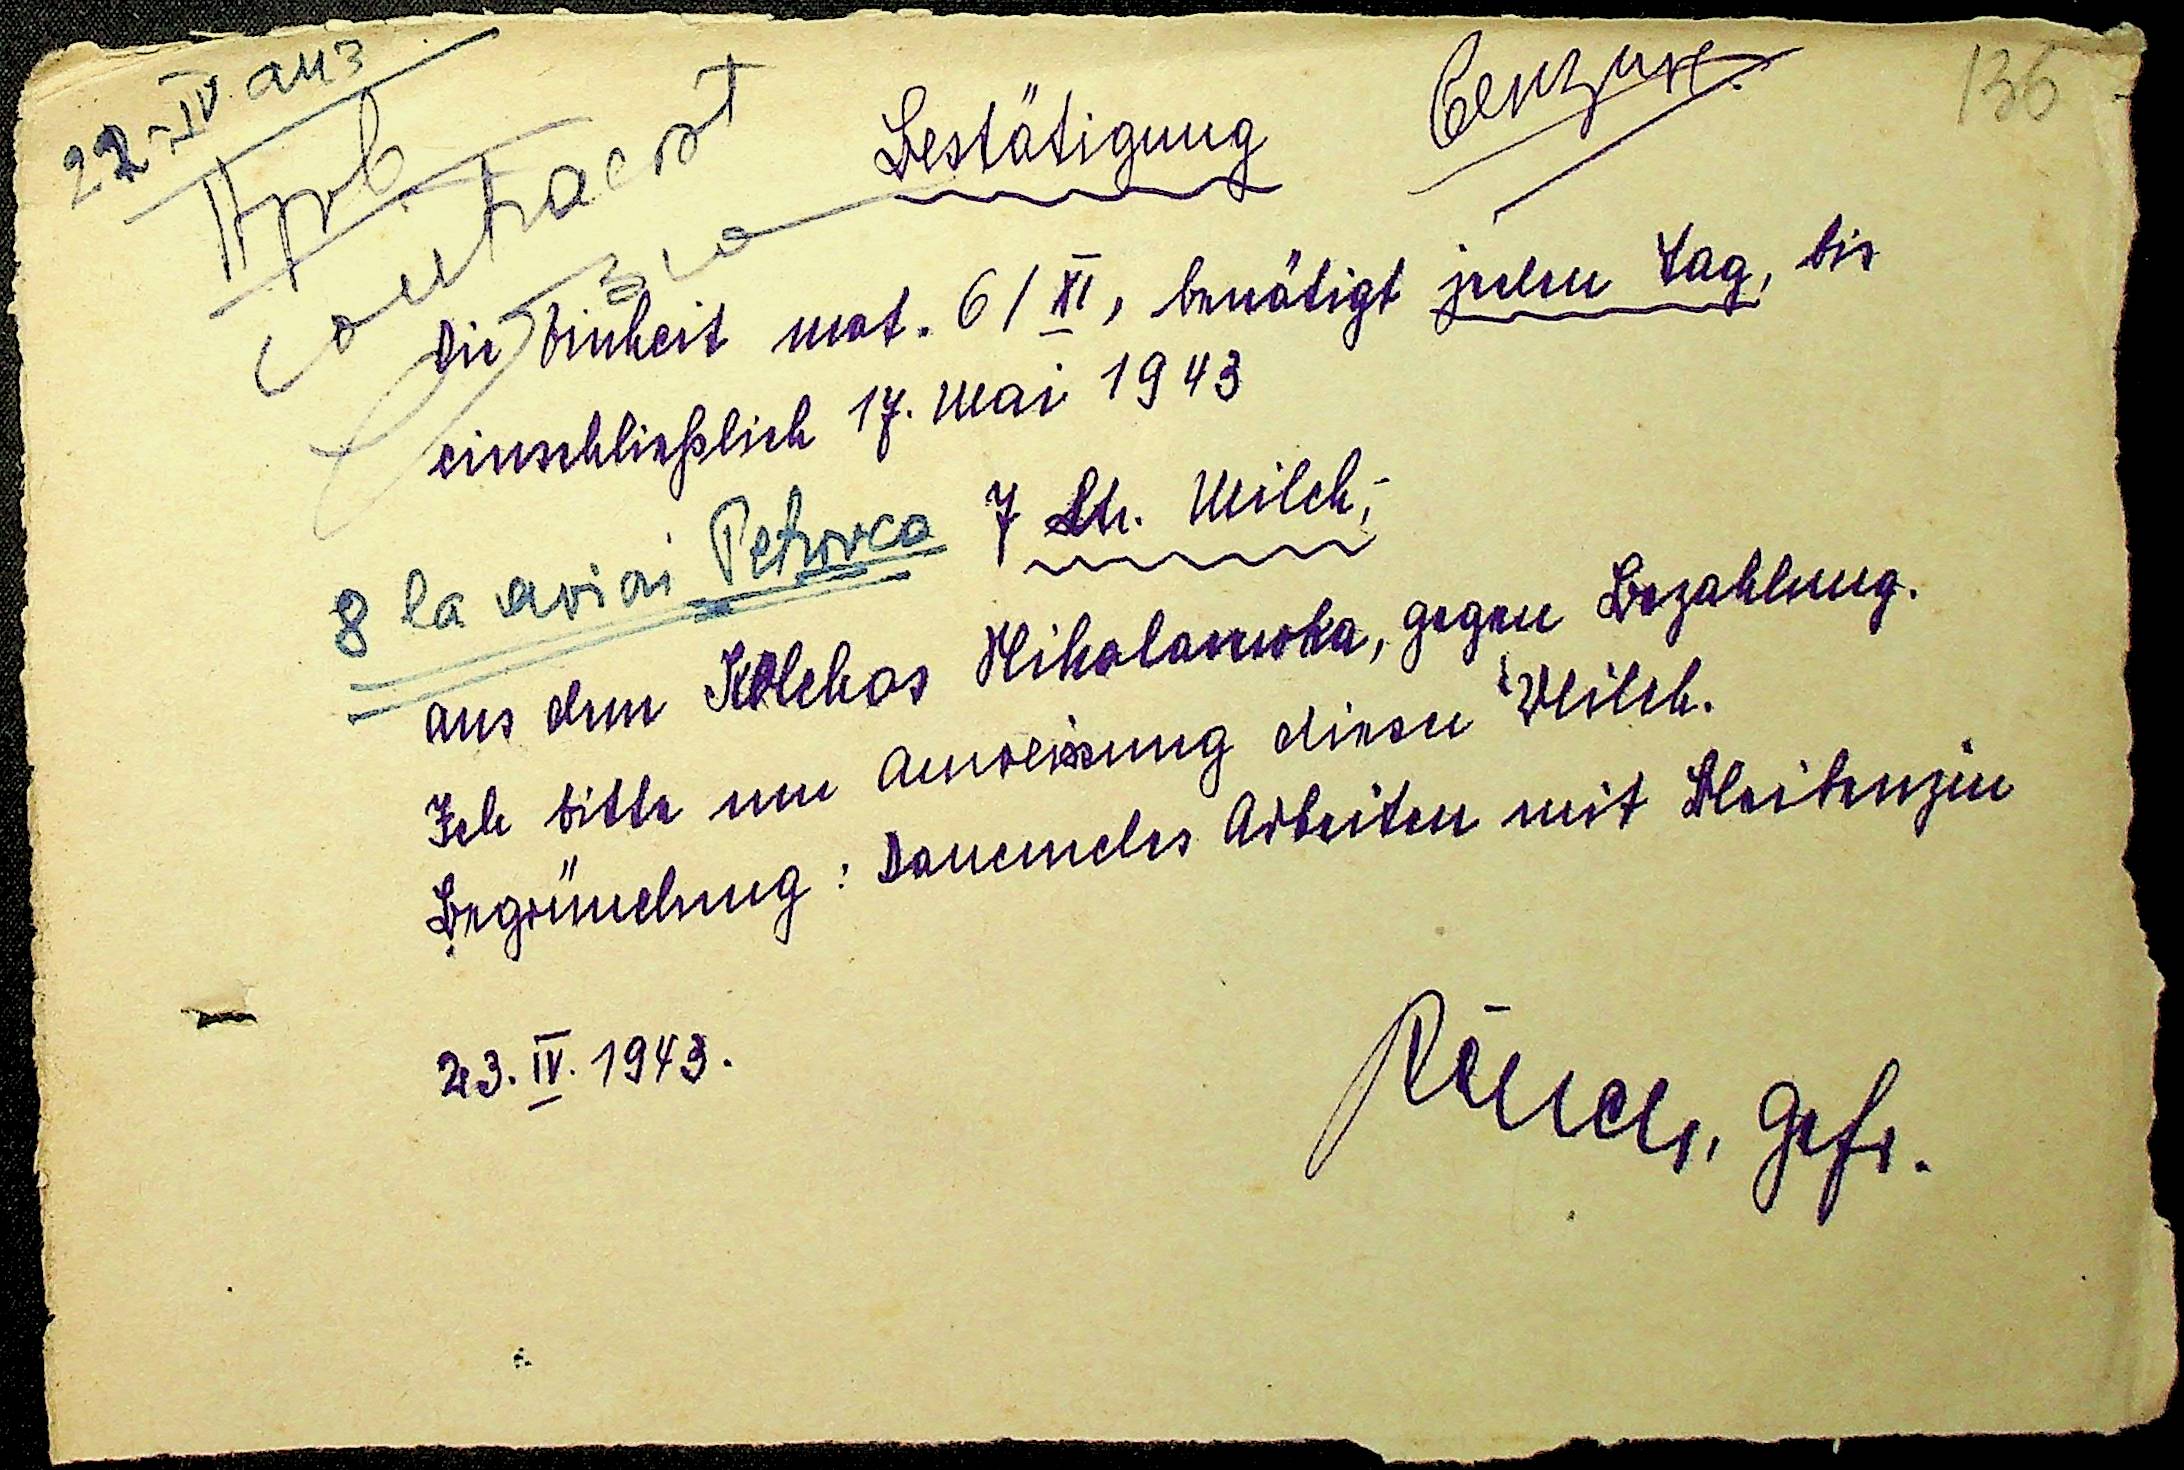 22-IV
136
Bestätigung
Die Einheit mot. 6/XI, benötigt jeden Tag, bis
einschließlich 17. Mai 1943
7 Ltr. Milch,
8 la avion Petrovca
aus dem Kolchos Nikolaewka, gegen Bezahlung.
Ich bitte um Anweisung dieser Milch.
Begründung: Dauerndes Arbeiten mit Bleibenzin
23. IV. 1943.
Gefr.